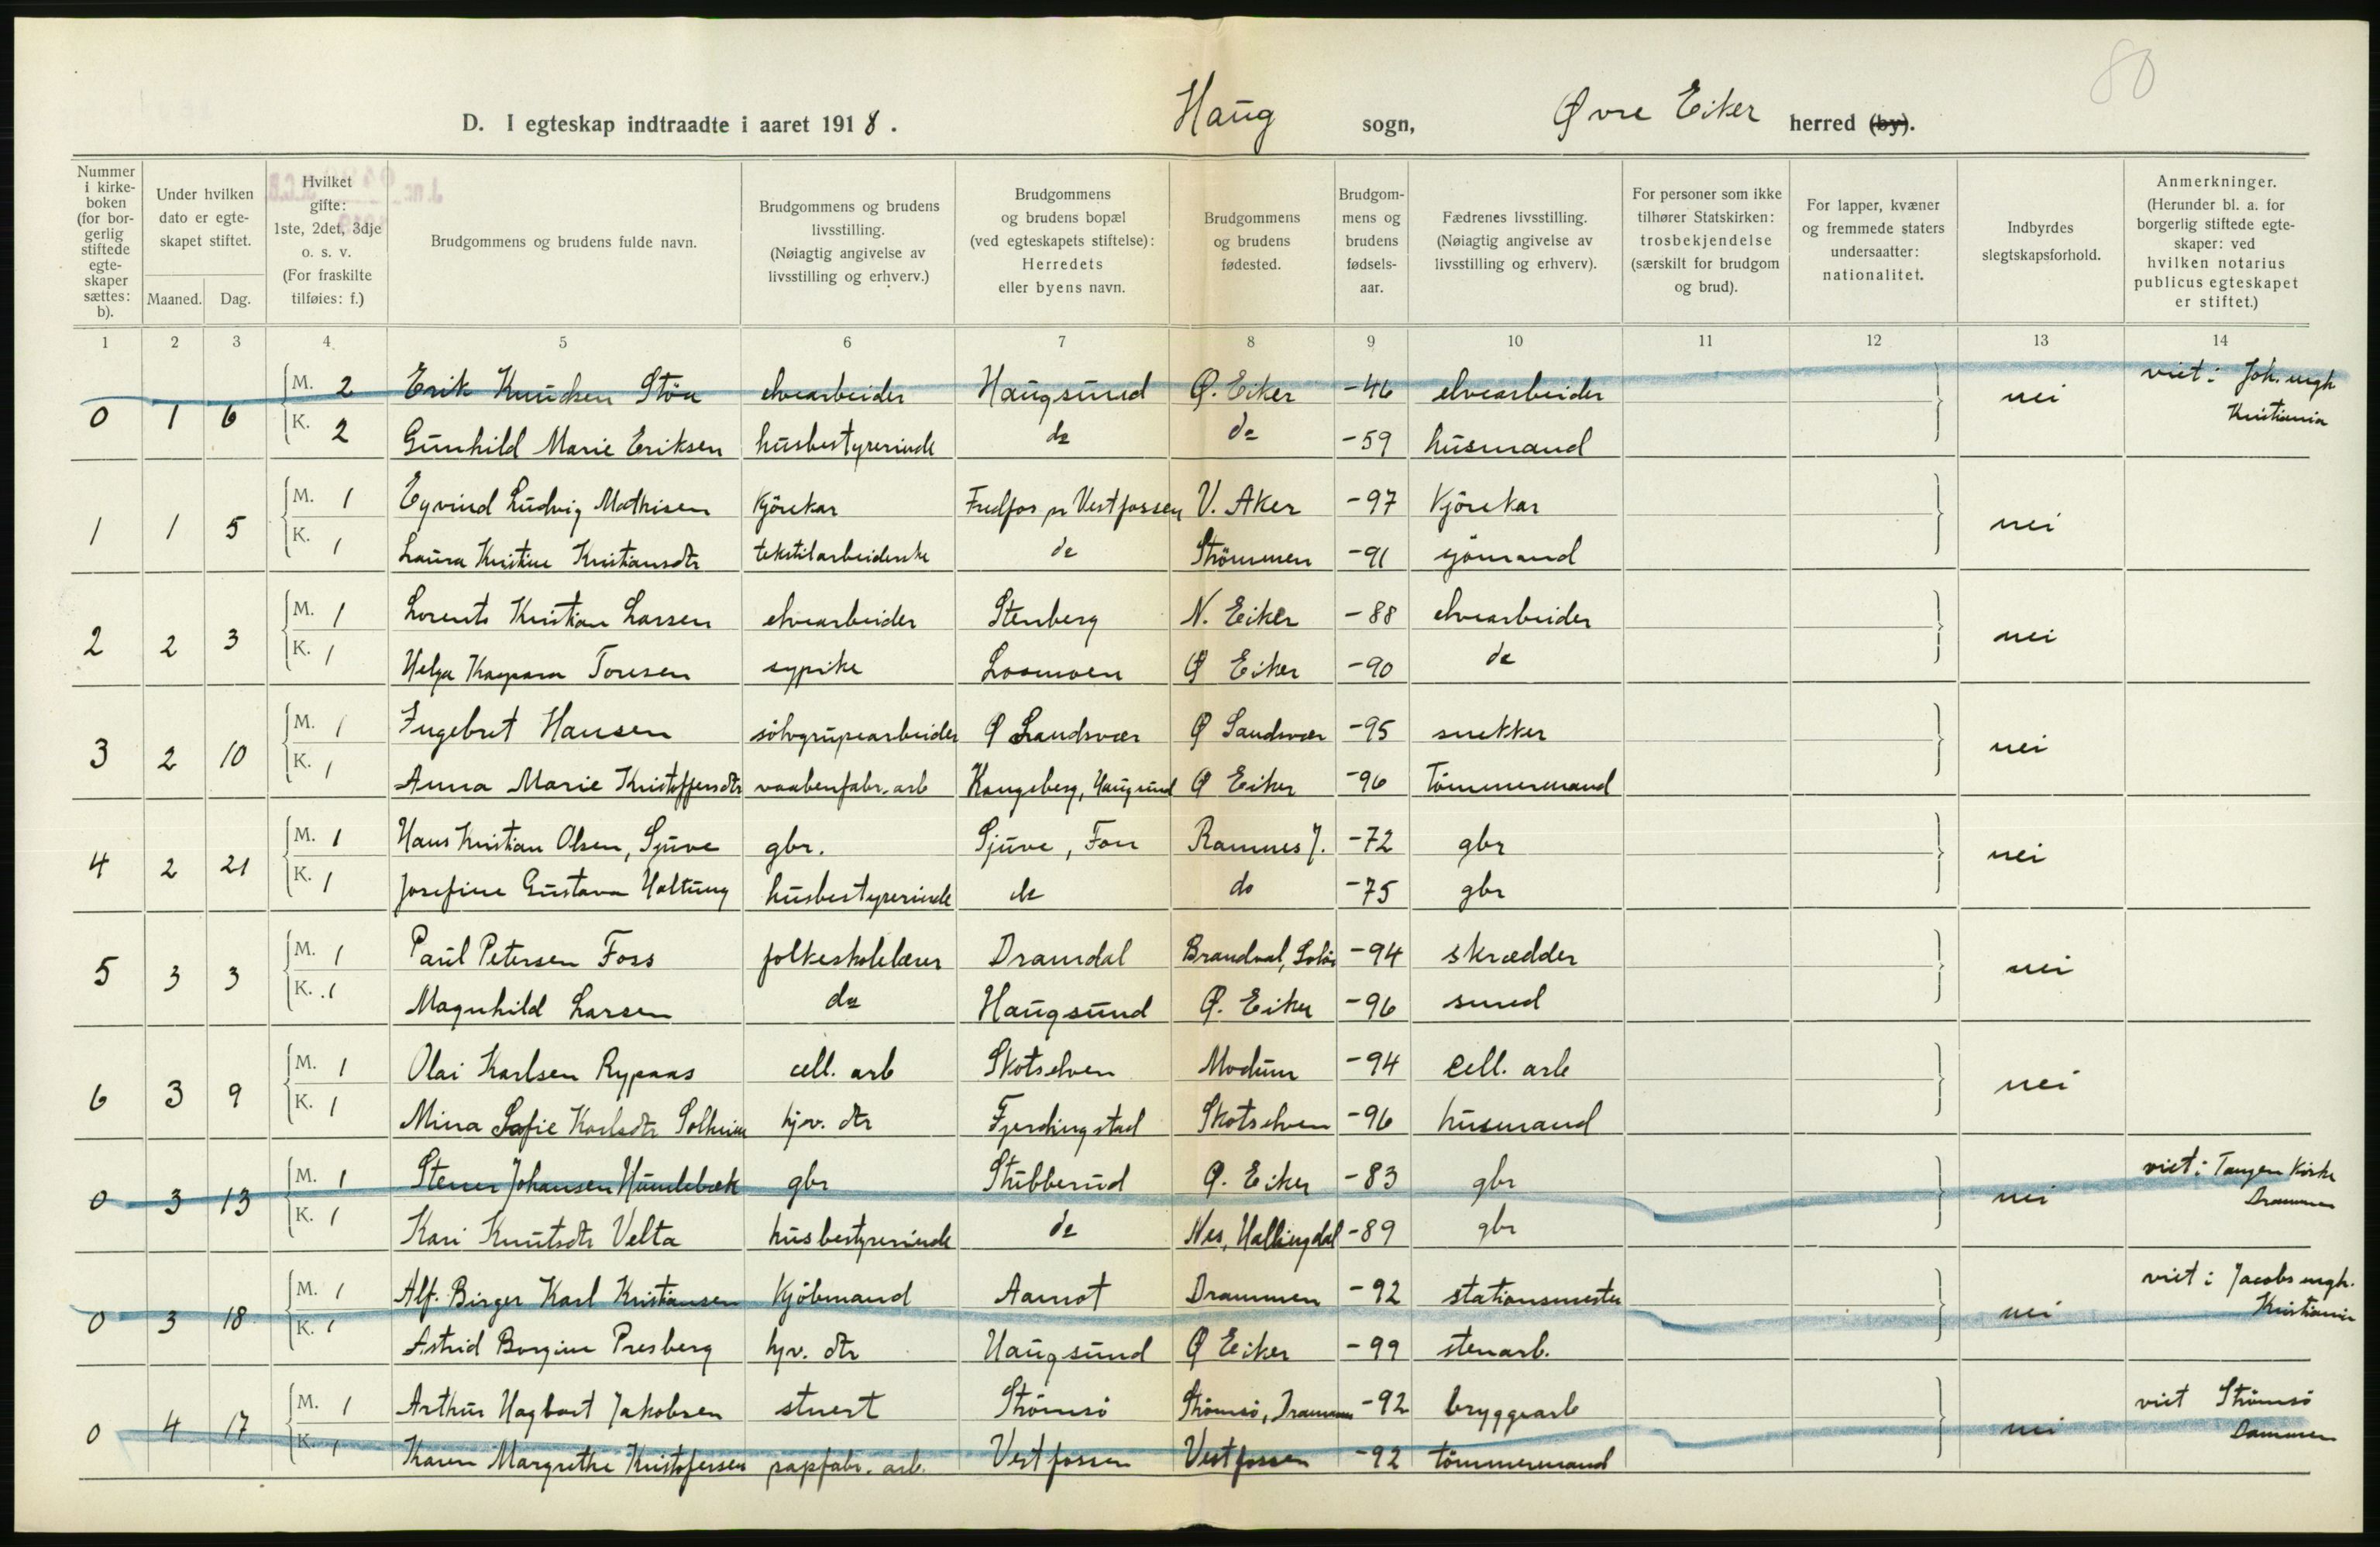 80
D. I egteskap indtraadte i aaret 1918. Haug sogn, Øvre Eiker herred (by).
Nummer i kirkeboken (for borgerlig stiftede egteskaper sættes: b). Under hvilken dato er egteskapet stiftet. Maaned. Dag. Hvilket gifte: 1ste, 2det, 3dje o. s. v. (For fraskilte tilføies: f.) Brudgommens og brudens fulde navn. Brudgommens og brudens livsstilling. (Nøiagtig angivelse av livsstilling og erhverv.) Brudgommens og brudens bopæl (ved egteskapets stiftelse): Herredets eller byens navn. Brudgommens og brudens fødested. Brudgommens og brudens fødselsaar. Fædrenes livsstilling. (Nøiagtig angivelse av livsstilling og erhverv). For personer som ikke tilhører Statskirken: trosbekjendelse (særskilt for brudgom og brud). For lapper, kvæner og fremmede staters undersaatter: nationalitet. Indbyrdes slegtskapsforhold. Anmerkninger. (Herunder bl. a. for borgerlig stiftede egteskaper: ved hvilken notarius publicus egteskapet er stiftet.)
1 2 3 4 5 6 7 8 9 10 11 12 13 14
0 1 6 M. 2 Erik Knudsen Stöa elvearbeider Haugsund Ø. Eiker -46 elvearbeider nei viet i Joh. mgh Kristiania
K. 2 Gunhild Marie Eriksen husbestyrerinde do do -59 husmand
1 1 5 M. 1 Eyvind Ludvig Mathisen Kjörekar Fredfos pr Vestfossen V. Aker -97 Kjörekar nei
K. 1 Laura Kristine Kristiansdtr tekstilarbeiderske do Strömmen -91 sjömand
2 2 3 M. 1 Lorents Kristian Larsen elvearbeider Stenberg N. Eiker -88 elvearbeider nei
K. 1 Helga Kaspara Toresen sypike Loomoen Ø Eiker -90 do
3 2 10 M. 1 Ingebret Hansen sölvgrupearbeider Ø Sandsvær Ø Sandsvær -95 snekker nei
K. 1 Anna Marie Kristoffersdtr vaabenfabr. arb Kongsberg, Haugsund Ø Eiker -96 Tömmermand
4 2 21 M. 1 Hans Kristian Olsen, Sjuve gbr. Sjuve, Fon Ramnes J. -72 gbr nei
K. 1 Josefine Gustava Haltung husbestyrerinde do do -75 gbr
5 3 3 M. 1 Paul Petersen Foss folkeskolelærer Dramdal Brandval, Solör -94 skrædder nei
K. 1 Magnhild Larsen do Haugsund Ø. Eiker -96 smed
6 3 9 M. 1 Olai Karlsen Rypaas cell. arb Skotselven Modum -94 cell. arb nei
K. 1 Mina Sofie Karlsdtr Solheim hjv. dtr Fjerdingstad Skotselven -96 husmand
0 3 13 M. 1 Stener Johansen Hundebæk gbr Stubberud Ø. Eiker -83 gbr nei viet i Tangen Kirke Drammen
K. 1 Kari Knutsdtr Velta husbestyrerinde do Nes, Hallingdal -89 gbr
0 3 18 M. 1 Alf. Birger Karl Kristiansen Kjöbmand Aamot Drammen -92 stationsmester nei viet i Jacobs mgh. Kristiania
K. 1 Astrid Borgine Presberg hjv. dtr Haugsund Ø Eiker -99 stenarb.
0 4 17 M. 1 Arthur Hagbart Jakobsen stuert Strömsö Strömsö, Drammen -92 bryggearb nei viet Strömsö Dammen
K. 1 Karen Margrethe Kristofersen papfabr. arb. Vestfossen Vestfossen -92 tömmermand